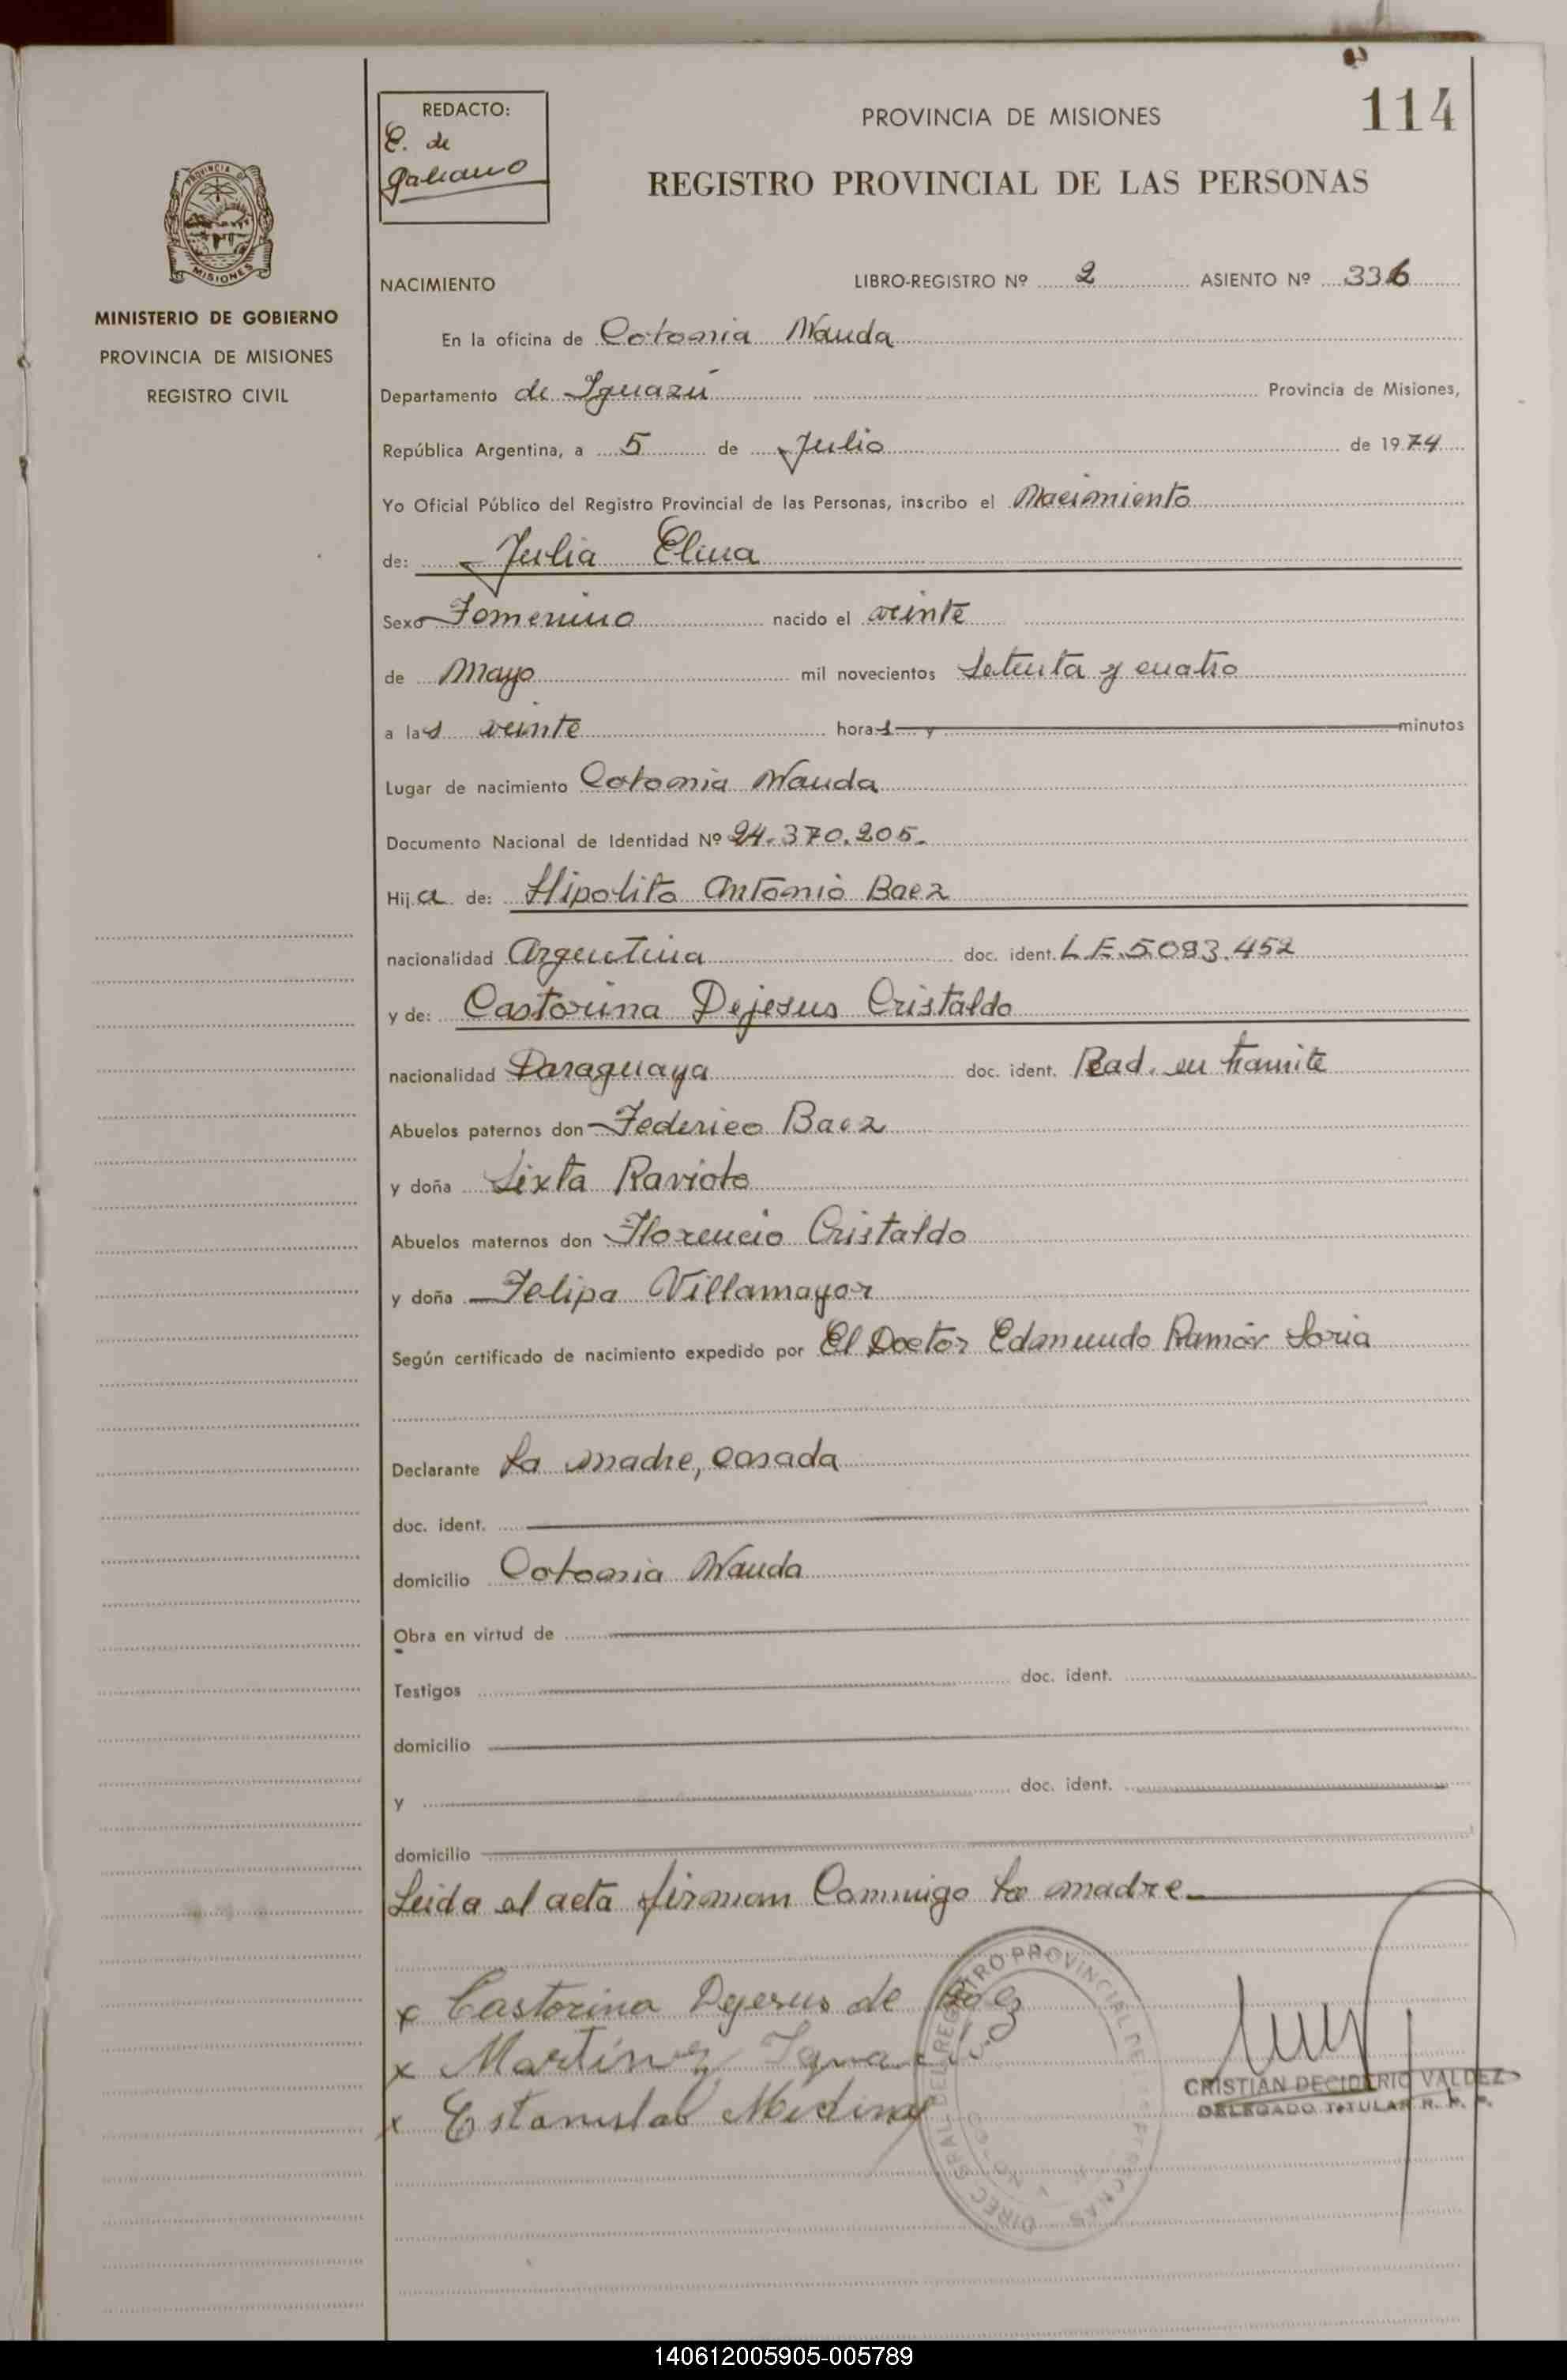 114
REDACTO:
E. de
Galeano
PROVINCIA DE MISIONES
REGISTRO PROVINCIAL DE LAS PERSONAS
PROVINCIA DE
MISIONES
MINISTERIO DE GOBIERNO
PROVINCIA DE MISIONES
REGISTRO CIVIL
NACIMIENTO LIBRO-REGISTRO Nº 2 ASIENTO Nº 336
En la oficina de Colonia Wanda
Departamento de Iguazú Provincia de Misiones,
República Argentina, a 5 de Julio de 1974
Yo Oficial Público del Registro Provincial de las Personas, inscribo el Nacimiento
de: Julia Elina
Sexo Femenino nacido el veinte
de Mayo mil novecientos Setenta y cuatro
a las veinte horas y minutos
Lugar de nacimiento Colonia Wanda
Documento Nacional de Identidad Nº 24.370.205.
Hija de: Hipolito Antonio Baez
nacionalidad Argentina doc. ident. L.E. 5.093.452
y de: Castorina Dejesus Cristaldo
nacionalidad Paraguaya doc. ident. Rad. en tramite
Abuelos paternos don Federico Baez
y doña Sixta Raviolo
Abuelos maternos don Florencio Cristaldo
y doña Felipa Villamayor
Según certificado de nacimiento expedido por El Doctor Edmundo Ramón Soria
Declarante La madre, casada
doc. ident.
domicilio Colonia Wanda
Obra en virtud de
Testigos doc. ident.
domicilio
y doc. ident.
domicilio
Leida el acta firman Conmigo la madre
x Castorina Dejesus de Baez
x Martinez
x Estanislao Medina
DIREC. GRAL. DEL REGISTRO PROVINCIAL DE LAS PERSONAS
CRISTIAN DECIDERIO VALDEZ
DELEGADO TITULAR R. P. P.
140612005905-005789